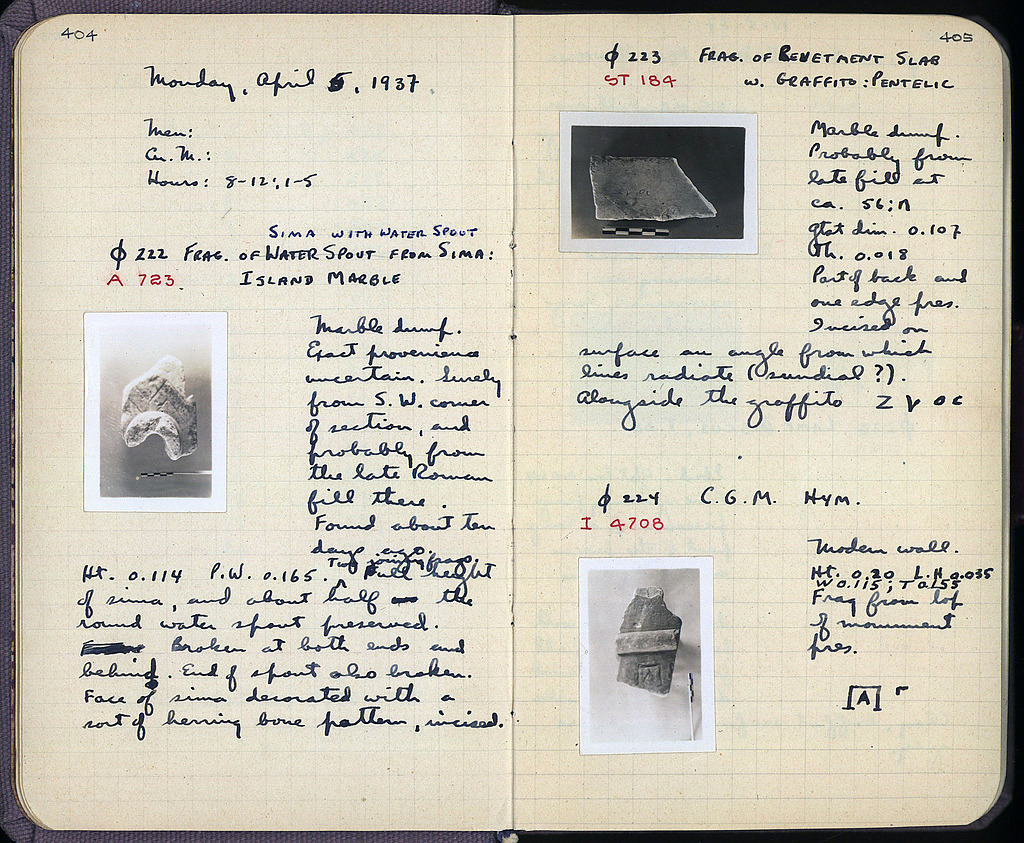 404
Monday, April 5, 1937
Men:
Cu. M.:
Hours: 8-12; 1-5
SIMA WITH WATER SPOUT
ϕ 222 FRAG. OF WATER SPOUT FROM SIMA:
A 723 ISLAND MARBLE
Marble dump.
Exact provenience
uncertain. Surely
from S.W. corner
of section, and
probably from
the late Roman
fill there.
Found about ten
days ago.
Two joining frags.
Ht. 0.114 P.W. 0.165. Full height
of sima, and about half the
round water spout preserved.
Broken at both ends and
behind. End of spout also broken.
Face of sima decorated with a
sort of herring bone pattern, incised.
405
ϕ 223 FRAG. OF REVETMENT SLAB
ST 184 W. GRAFFITO: PENTELIC
Marble dump.
Probably from
late fill at
ca. 56;
gtst dim. 0.107
Th. 0.018
Part of back and
one edge pres.
Incised on
surface an angle from which
lines radiate (sundial?).
Alongside the graffito
ϕ 224 C.G.M. HYM.
I 4708
Modern wall.
Ht. 0.20 L.H 0.035
W 0.115; T 0.155
Frag from top
of monument
pres.
[A] r